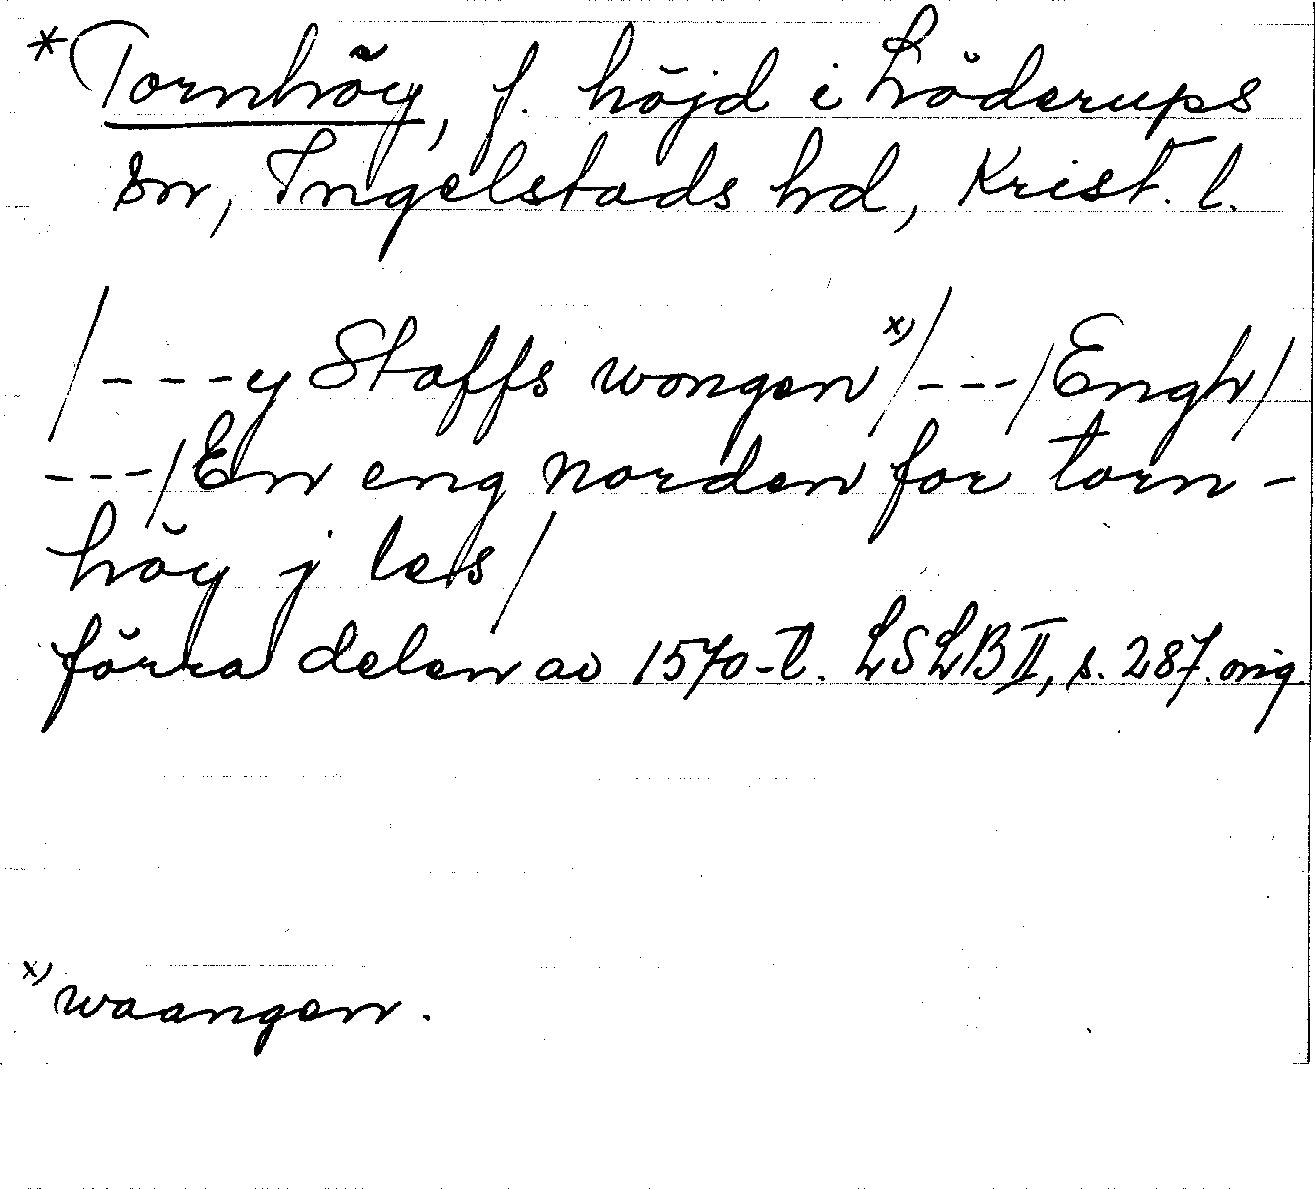 *Tornhöy, f. höjd i Löderups
sn, Ingelstads hd, Krist. l.
/---y Staffs wongen x)/---/Engh/
---/En eng norden for torn-
höy j les/
förra delen av 1570-t. LSLB II, s. 287. orig.
x) waangen.